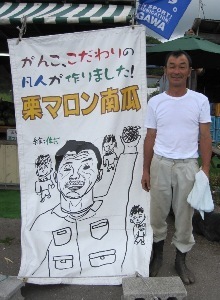 がんこ、こだわりの
凡人が作りました!
栗マロン南瓜
SPORT
GAWA